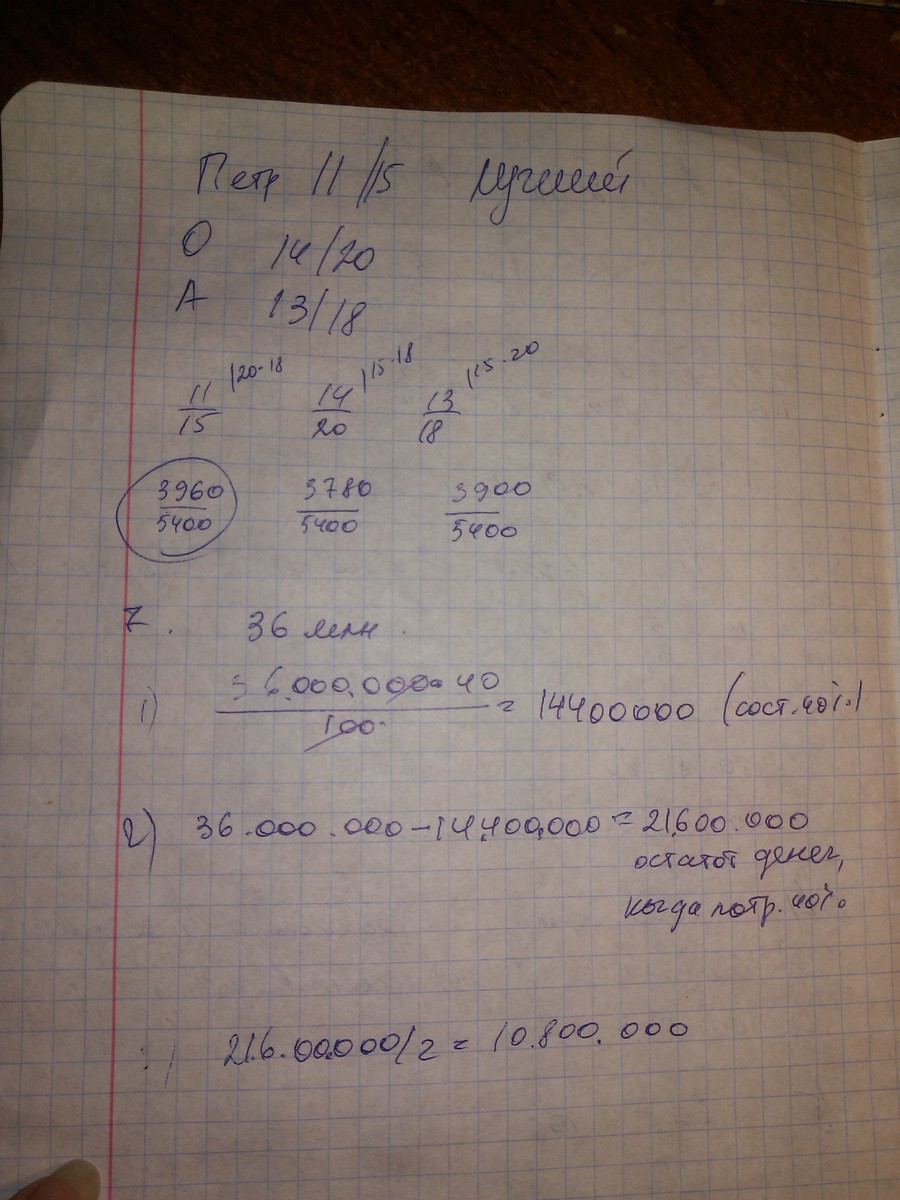 Петр 11/15 Лучший
О 14/20
А 13/18
11/15 |20·18 14/20 |15·18 13/18 |15·20
3960/5400 3780/5400 3900/5400
7. 36 млн.
1) 36.000.000·40/100 = 14400000 (сост. 40%)
2) 36.000.000-14,400,000 = 21.600.000
остатот денег,
когда потр. 40%
21.6.00.000/2 = 10.800.000